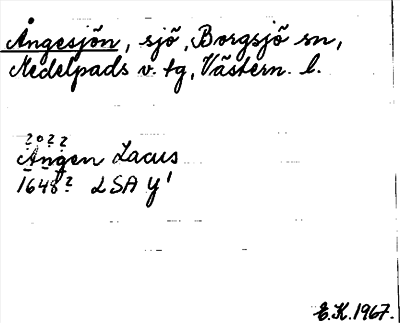 Ångesjön, sjö, Borgsjö sn,
Medelpads v. tg, Västern. l.
? o ? ?
Ången Lacus
1648? LSA Y'
E.K. 1967.